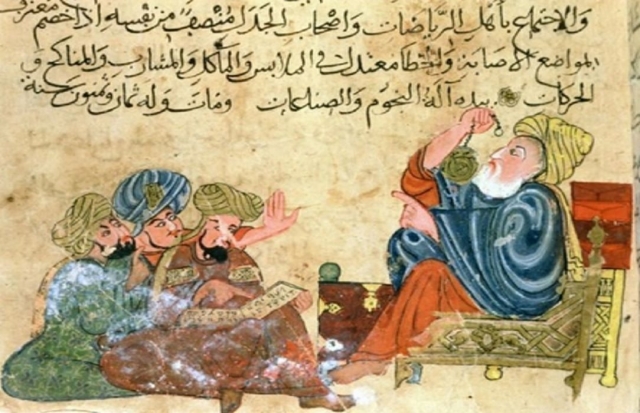 والاجتماع بأهل الرياضات وأصحاب الجدل منصف من نفسه إذا خصم معترف
بمواضع الإصابة والخطا معتدل في الملابس والمآكل والمشارب والمناكح و
الحركات بيده آلة النجوم والصناعات ومات وله ثمان وثمنون سنة